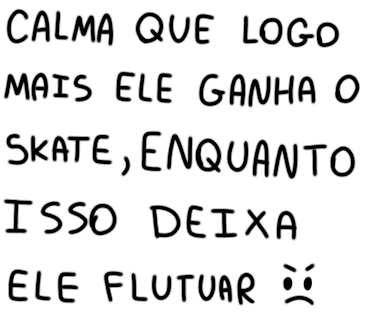 CALMA QUE LOGO
MAIS ELE GANHA O
SKATE, ENQUANTO
ISSO DEIXA
ELE FLUTUAR